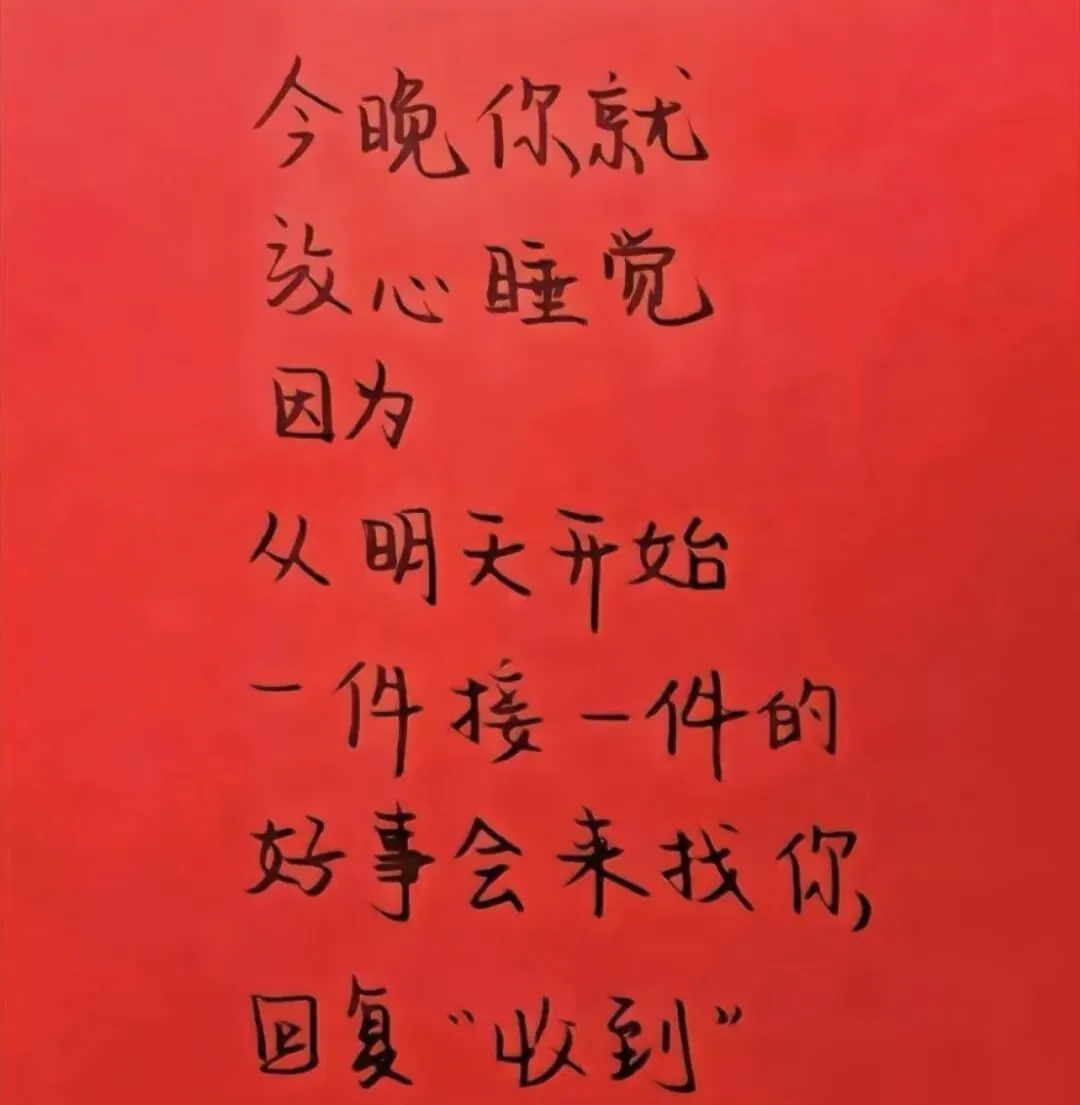 今晚你就
放心睡觉
因为
从明天开始
一件接一件的
好事会来找你,
回复“收到”